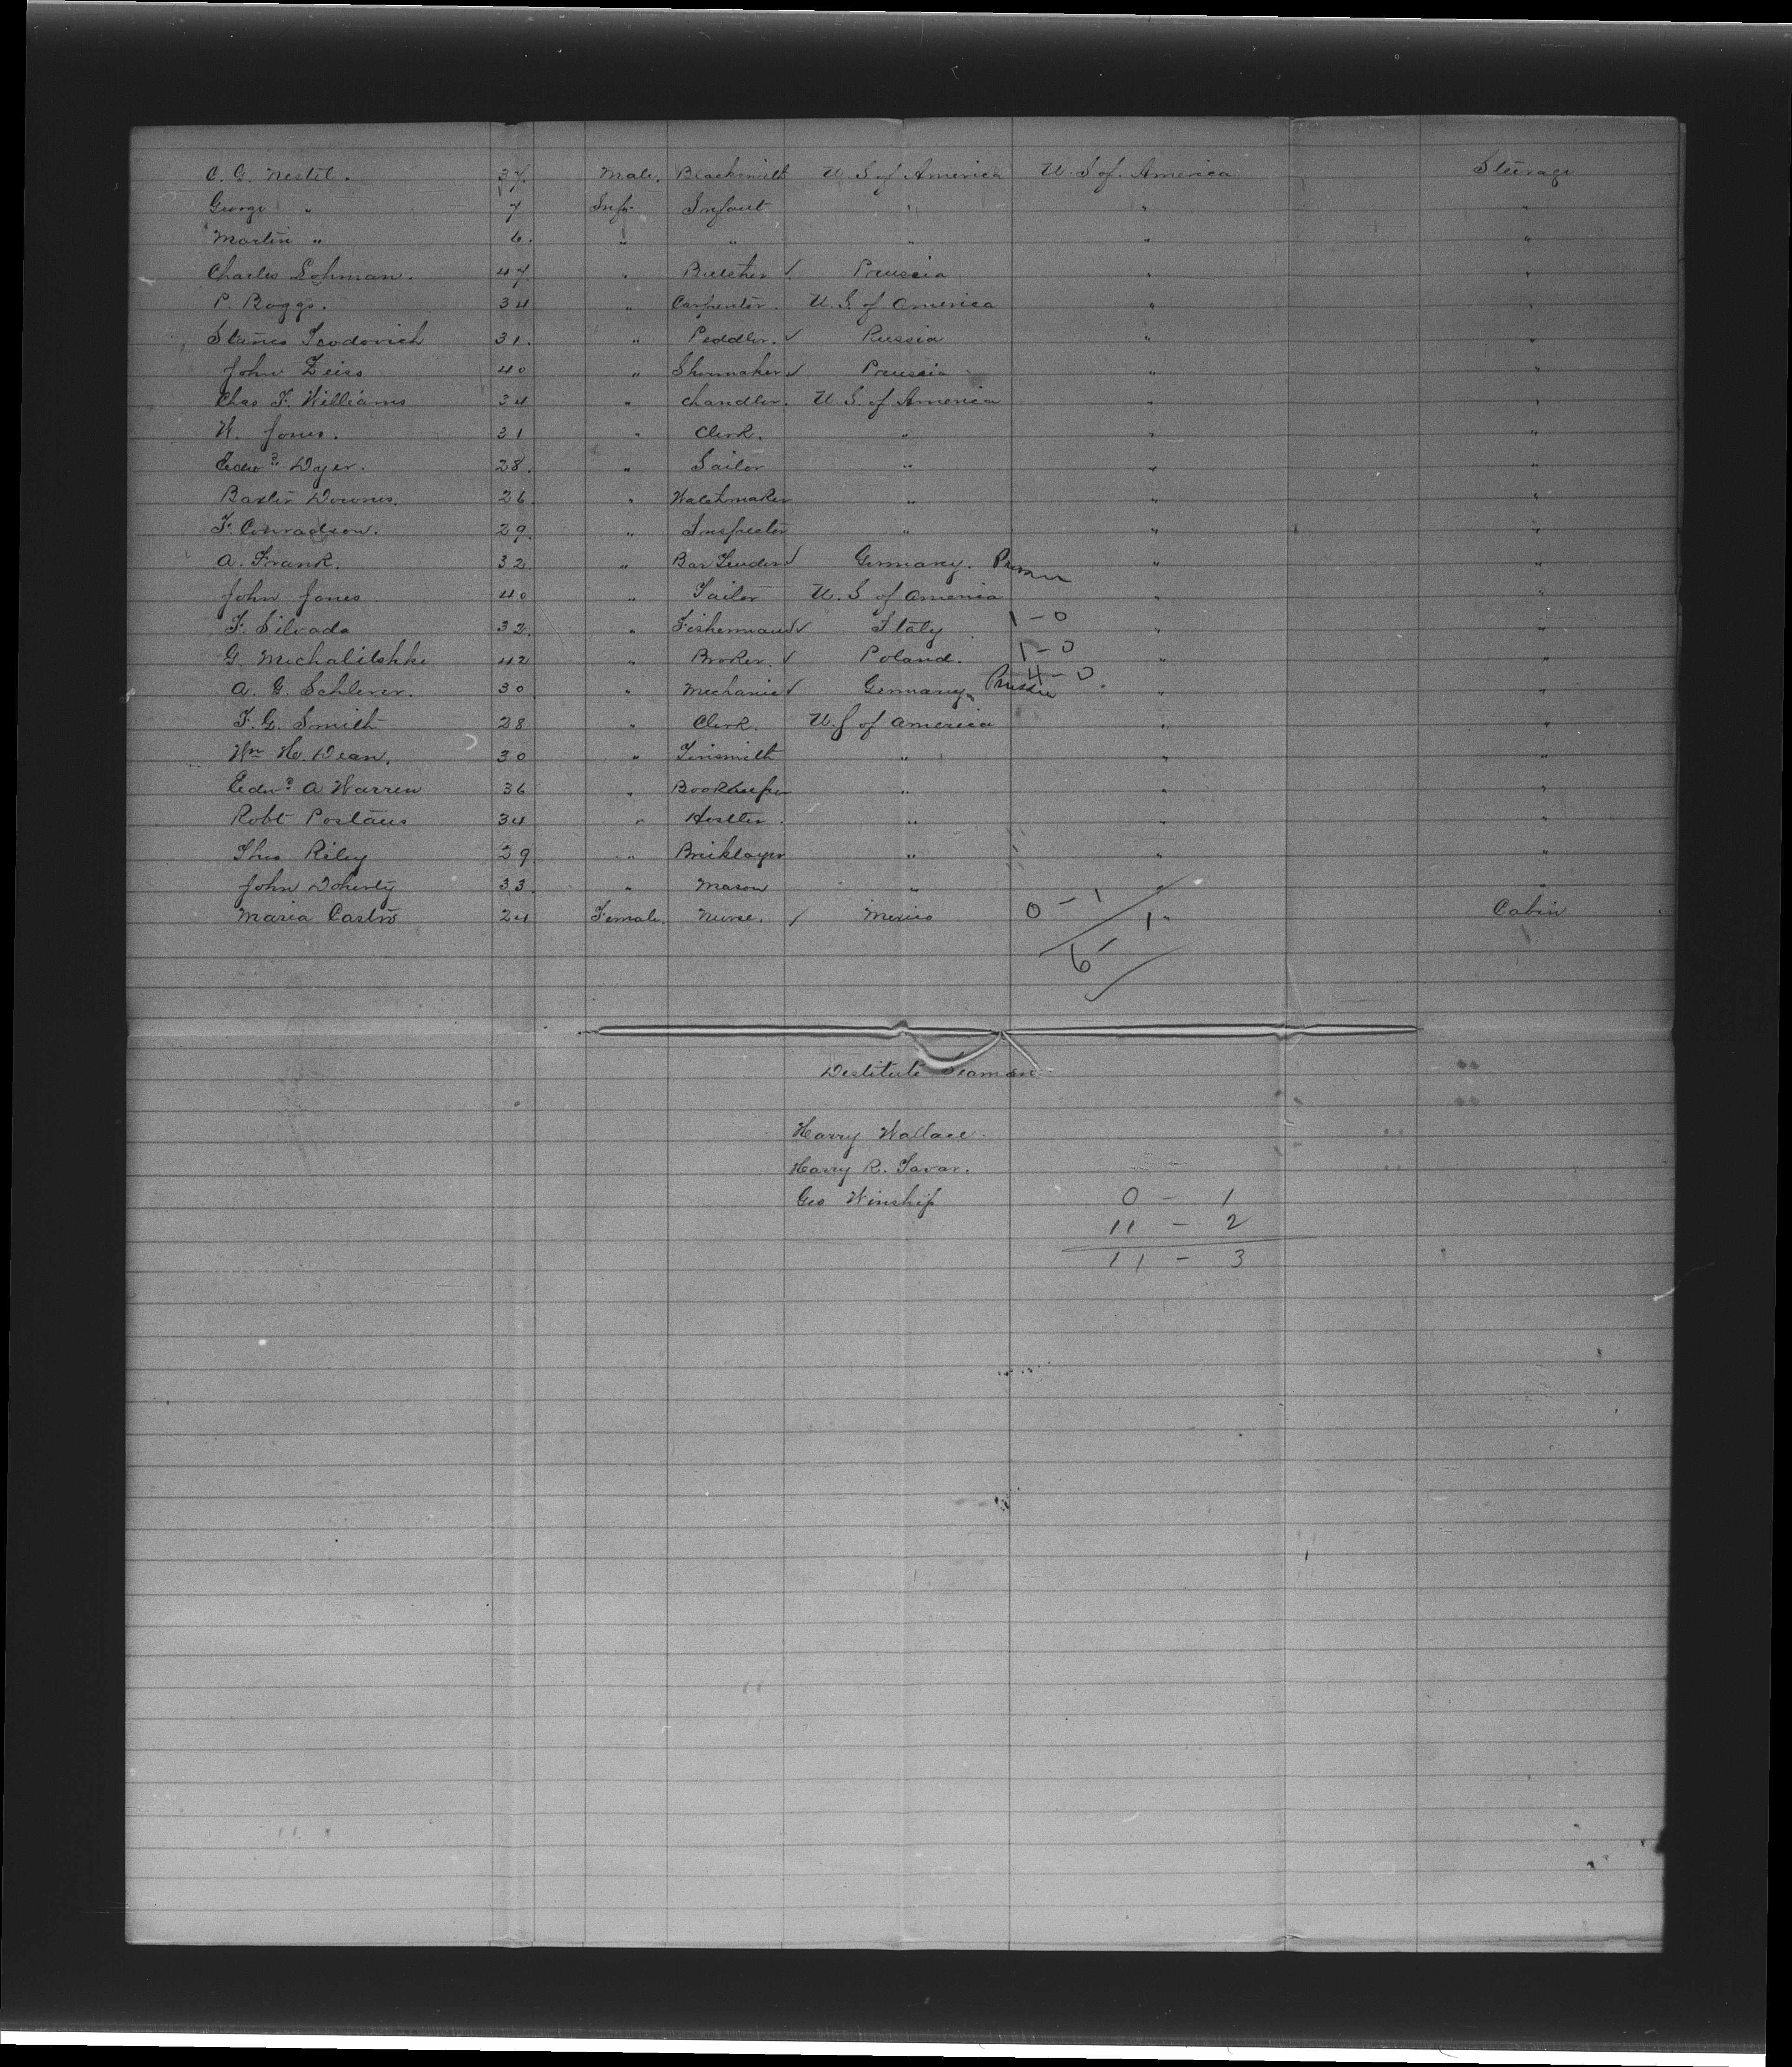 C. G. Nestel. 37. Male. Blacksmith U. S of America U. S of. America Steerage
George " 7 Inft. Infant " " "
Martin " 6. " " " " "
Charles Lohman. 47. " Butcher ✓ Prussia " "
P. Boggs. 34 " Carpenter. U. S of America " "
31. " Peddler. ✓ Russia " "
John Zeiss 40 " Shoemaker ✓ Prussia " "
Chas F. Williams 34 " Chandler. U. S of America " "
W. Jones. 31 " Clerk. " " "
Edwd Dyer. 28. " Sailor " " "
Baxter Downes. 26. " Watchmaker " " "
F. Conradson. 29. " Inspector " " "
A. Frank. 32. " Bar Tender ✓ Germany. " "
John Jones 40 " Tailor U. S of America " "
F. Silvada 32. " Fisherman ✓ Italy 1 - 0 " "
G. 42 " Broker. ✓ Poland. 1 - 0 " "
A. G. 30 " Mechanic ✓ Germany Prussia 4 - 0 " "
F. G. Smith 28 " Clerk. U. S of America " "
Wm H. Dean. 30 " Tinsmith " " "
Edwd A Warren 36 " Bookkeeper " " "
Robt 34 " Hostler. " " "
Thos Riley 29. " Bricklayer " " "
John Doherty 33. " Mason " " "
Maria Castro 24 Female. Nurse. / Mexico 0 - 1 1 " Cabin
6
Destitute Seamen
Harry Wallace.
Harry R.
Geo Winship 0 - 1
11 - 2
11 - 3